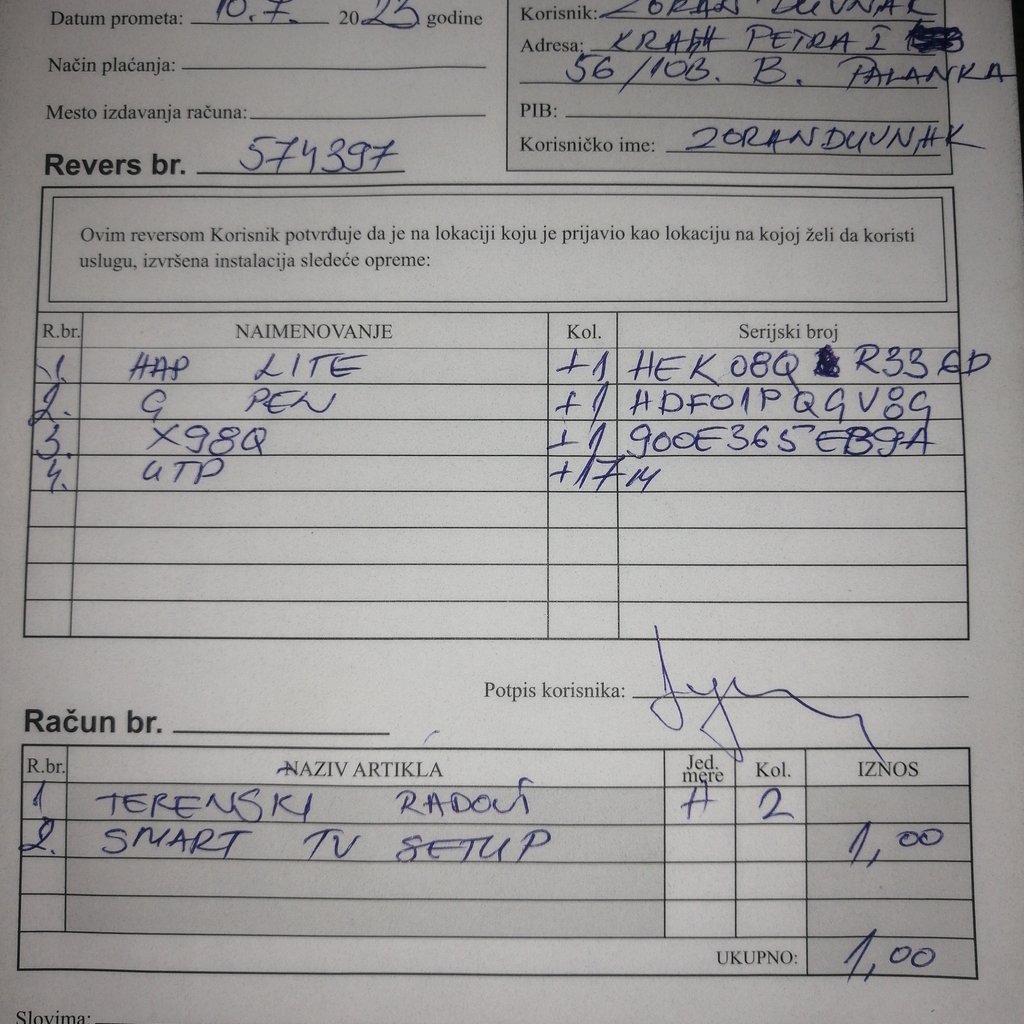 Datum prometa: 10.7. 2023 godine
Način plaćanja:
Mesto izdavanja računa:
Korisnik: ZORAN DUVNAK
Adresa: PETRA I
56/10B. B. PALANKA
PIB:
Korisničko ime: ZORANDUVNAK
Revers br. 574397
Ovim reversom Korisnik potvrđuje da je na lokaciji koju je prijavio kao lokaciju na kojoj želi da koristi
uslugu, izvršena instalacija sledeće opreme:
R.br. NAIMENOVANJE Kol. Serijski broj
1. HAP LITE +1 HEK08Q
2. G PEN +1 HDF01PQGV8G
3. X98Q +1 900E365EB9A
4. UTP +17 M
Potpis korisnika:
Račun br.
R.br. NAZIV ARTIKLA Jed. mere Kol. IZNOS
1 TERENSKI RADOVI H 2
2. SMART TV SETUP 1,00
UKUPNO: 1,00
Slovima: